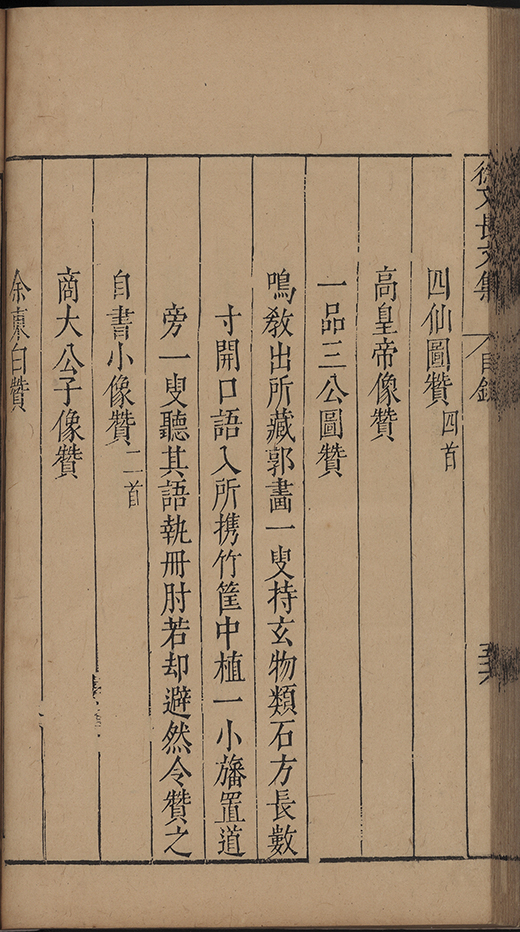 徐文長文集 目錄
四仙圖贊 四首
高皇帝像贊
一品三公圖贊
鳴教出所藏郭畫一叟持玄物類石方長數
寸開口語入所携竹筐中植一小旛置道
旁一叟聽其語執冊肘若却避然令贊之
自書小像贊 二首
商大公子像贊
白贊